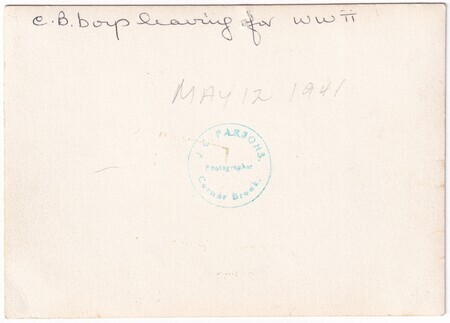 C.B. boys leaving for WW II
MAY 12 1941
J. C. PARSONS.
Photographer
Corner Brook.